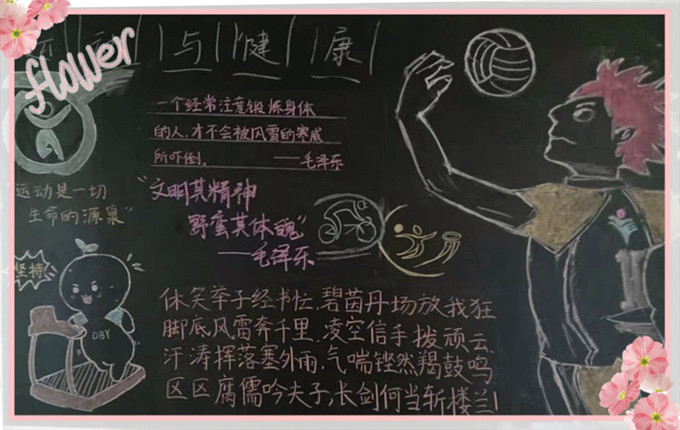 flower
与健康
一个经常注意锻炼身体
的人,才不会被风雪的寒威
所吓倒。
——毛泽东
运动是一切
生命的源泉"
"文明其精神
野蛮其体魄"
——毛泽东
坚持
DBY
休笑举子经书忙,碧茵丹场放我狂
脚底风雷奔千里,凌空信手拨顽云
汗涛挥落塞外雨,气喘铿然羯鼓鸣
区区腐儒吟夫子,长剑何当斩楼兰